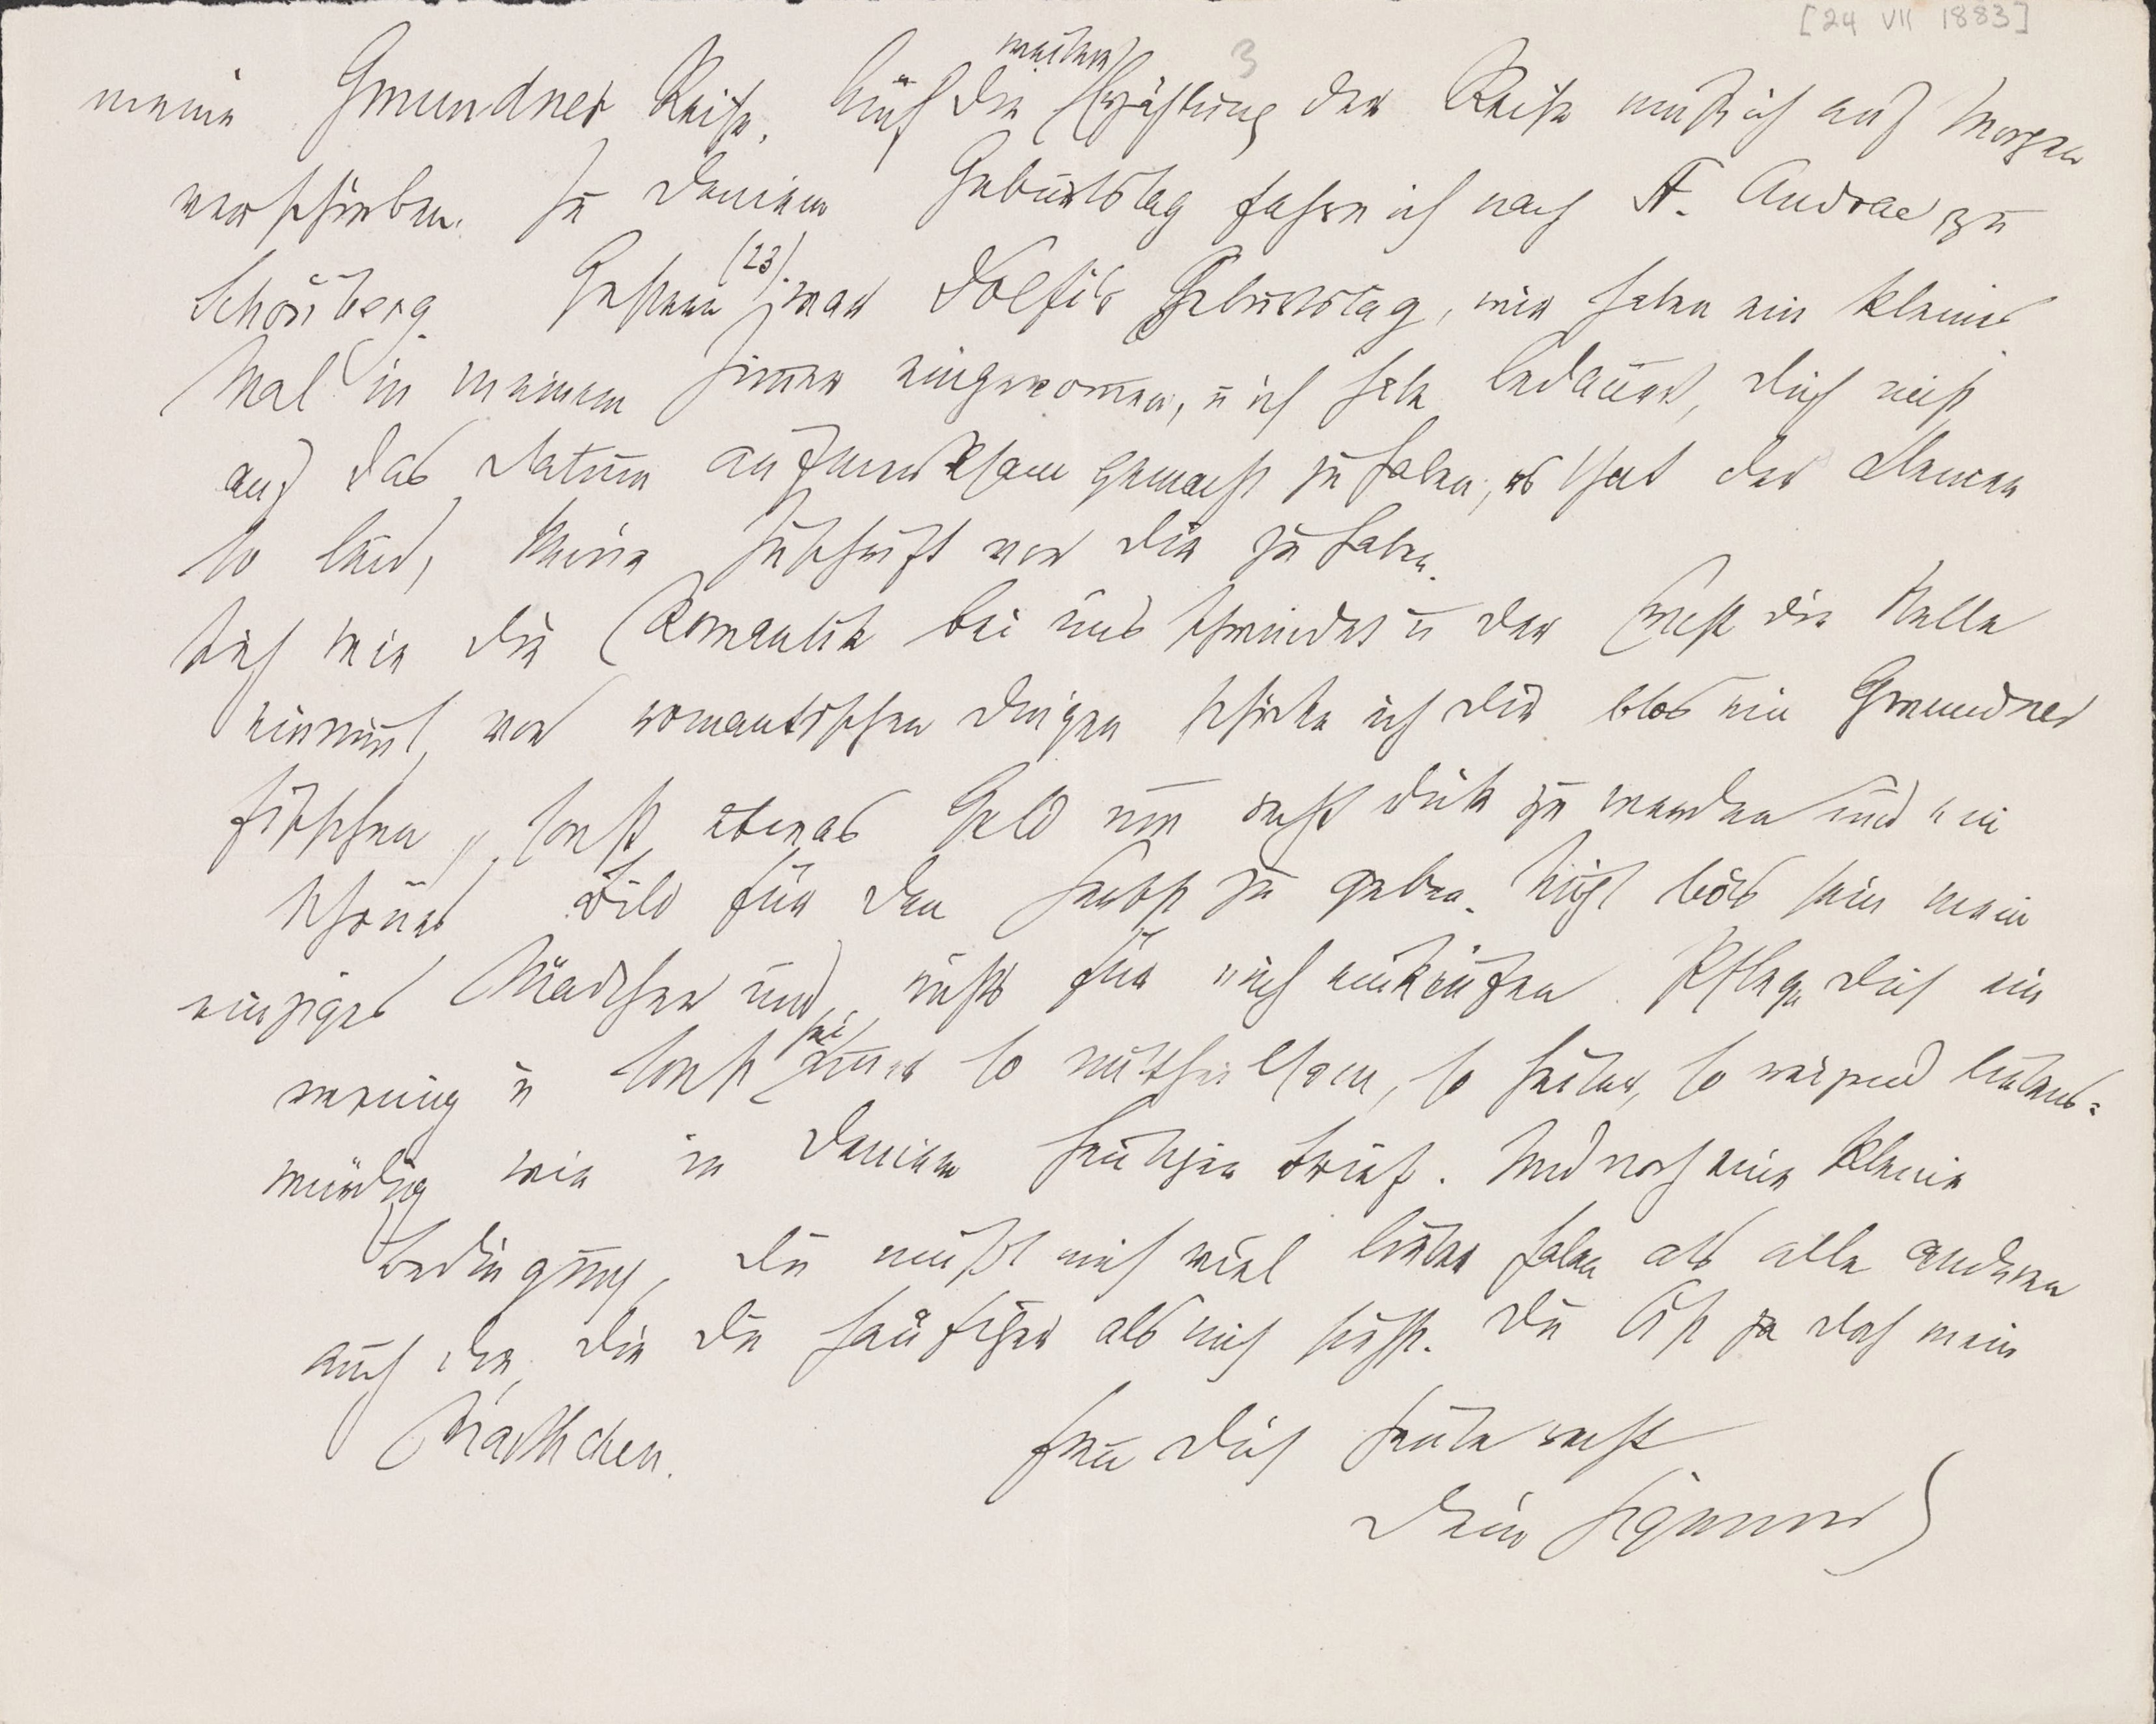 [24 VII 1883]
3
meine Gmundner Reise. Auch die weitere Erzählung der Reise muß ich auf Morgen
verschieben. Zu Deinem Geburtstag fahre ich nach St. Andrae zu
Schönberg. Gestern (23) war Dolfis Geburtstag, wir haben ein kleines
Mal in meinem Zimer eingenomen, u ich habe bedauert, Dich nicht
auf das Datum aufmerksam gemacht zu haben, es that der Kleinen
so leid, keine Zuschrift von Dir zu haben.
Sieh wie die Romantik bei uns schwindet u der Ernst die Stelle
einnimt, von romantischen Dingen schicke ich Dir blos ein Gmundner
sonst etwas Geld um recht dick zu werden und ein
schönes Bild für den Herbst zu geben. Nicht bös sein mein
einziges Mädchen und nichts für mich einkaufen. Pflege Dich ein
wenig u sonst sei imer so mittheilsam, so heiter, so reizend liebens-
würdig wie in Deinem heutigen Brief. Und noch eine kleine
Bedingung, Du mußt mich viel lieber haben als alle anderen
auch die, die Du häufiger als mich siehst. Du bist ja doch mein
Marthchen.
Freu Dich heute recht
Dein Sigmund